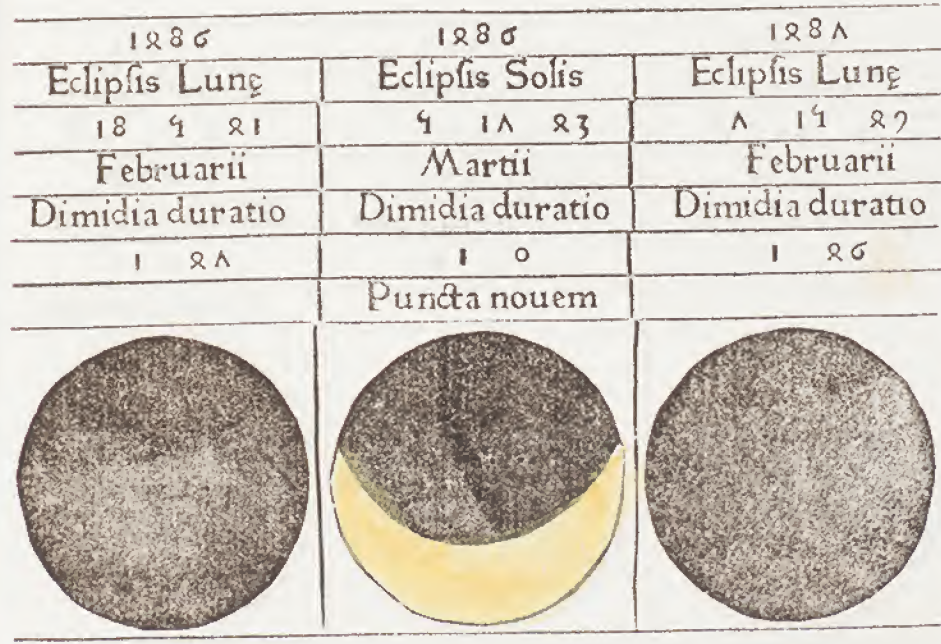 1486 1486 1487
Eclipſis Lunę Eclipſis Solis Eclipſis Lunę
18 5 41 5 17 43 7 15 49
Februarii Martii Februarii
Dimidia duratio Dimidia duratio Dimidia duratio
1 47 1 0 1 46
Puncta nouem